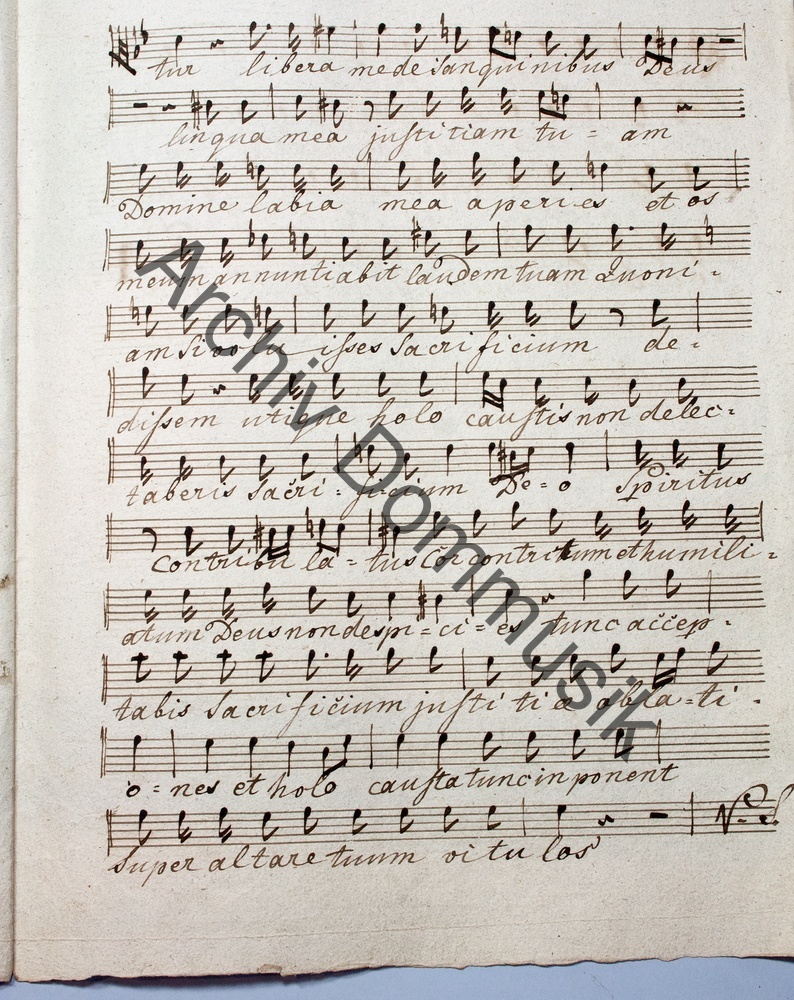 tur libera me de sanguinibus Deus
lingua mea justitiam tu = am
Domine labia mea aperi es et os
meum annuntiabit laudem tuam Quoni -
am si volu isses Sacrificium de =
dissem utique holo caustis non delec =
taberis Sacri = ficium De = o Spiritus
contribu la = tus Cor contritum et humili =
atum Deus non despi = ci = es tunc accep -
tabis Sacrificium justi ti æ obla = ti -
o = nes et holo causta tunc inponent
Super altare tuum vi tu los
Archiv Dommusik